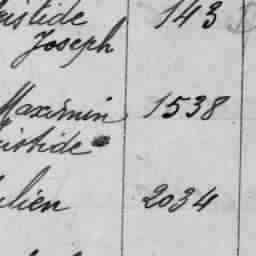 istide 143
Joseph
Maximin 1538
istide
lien 2034